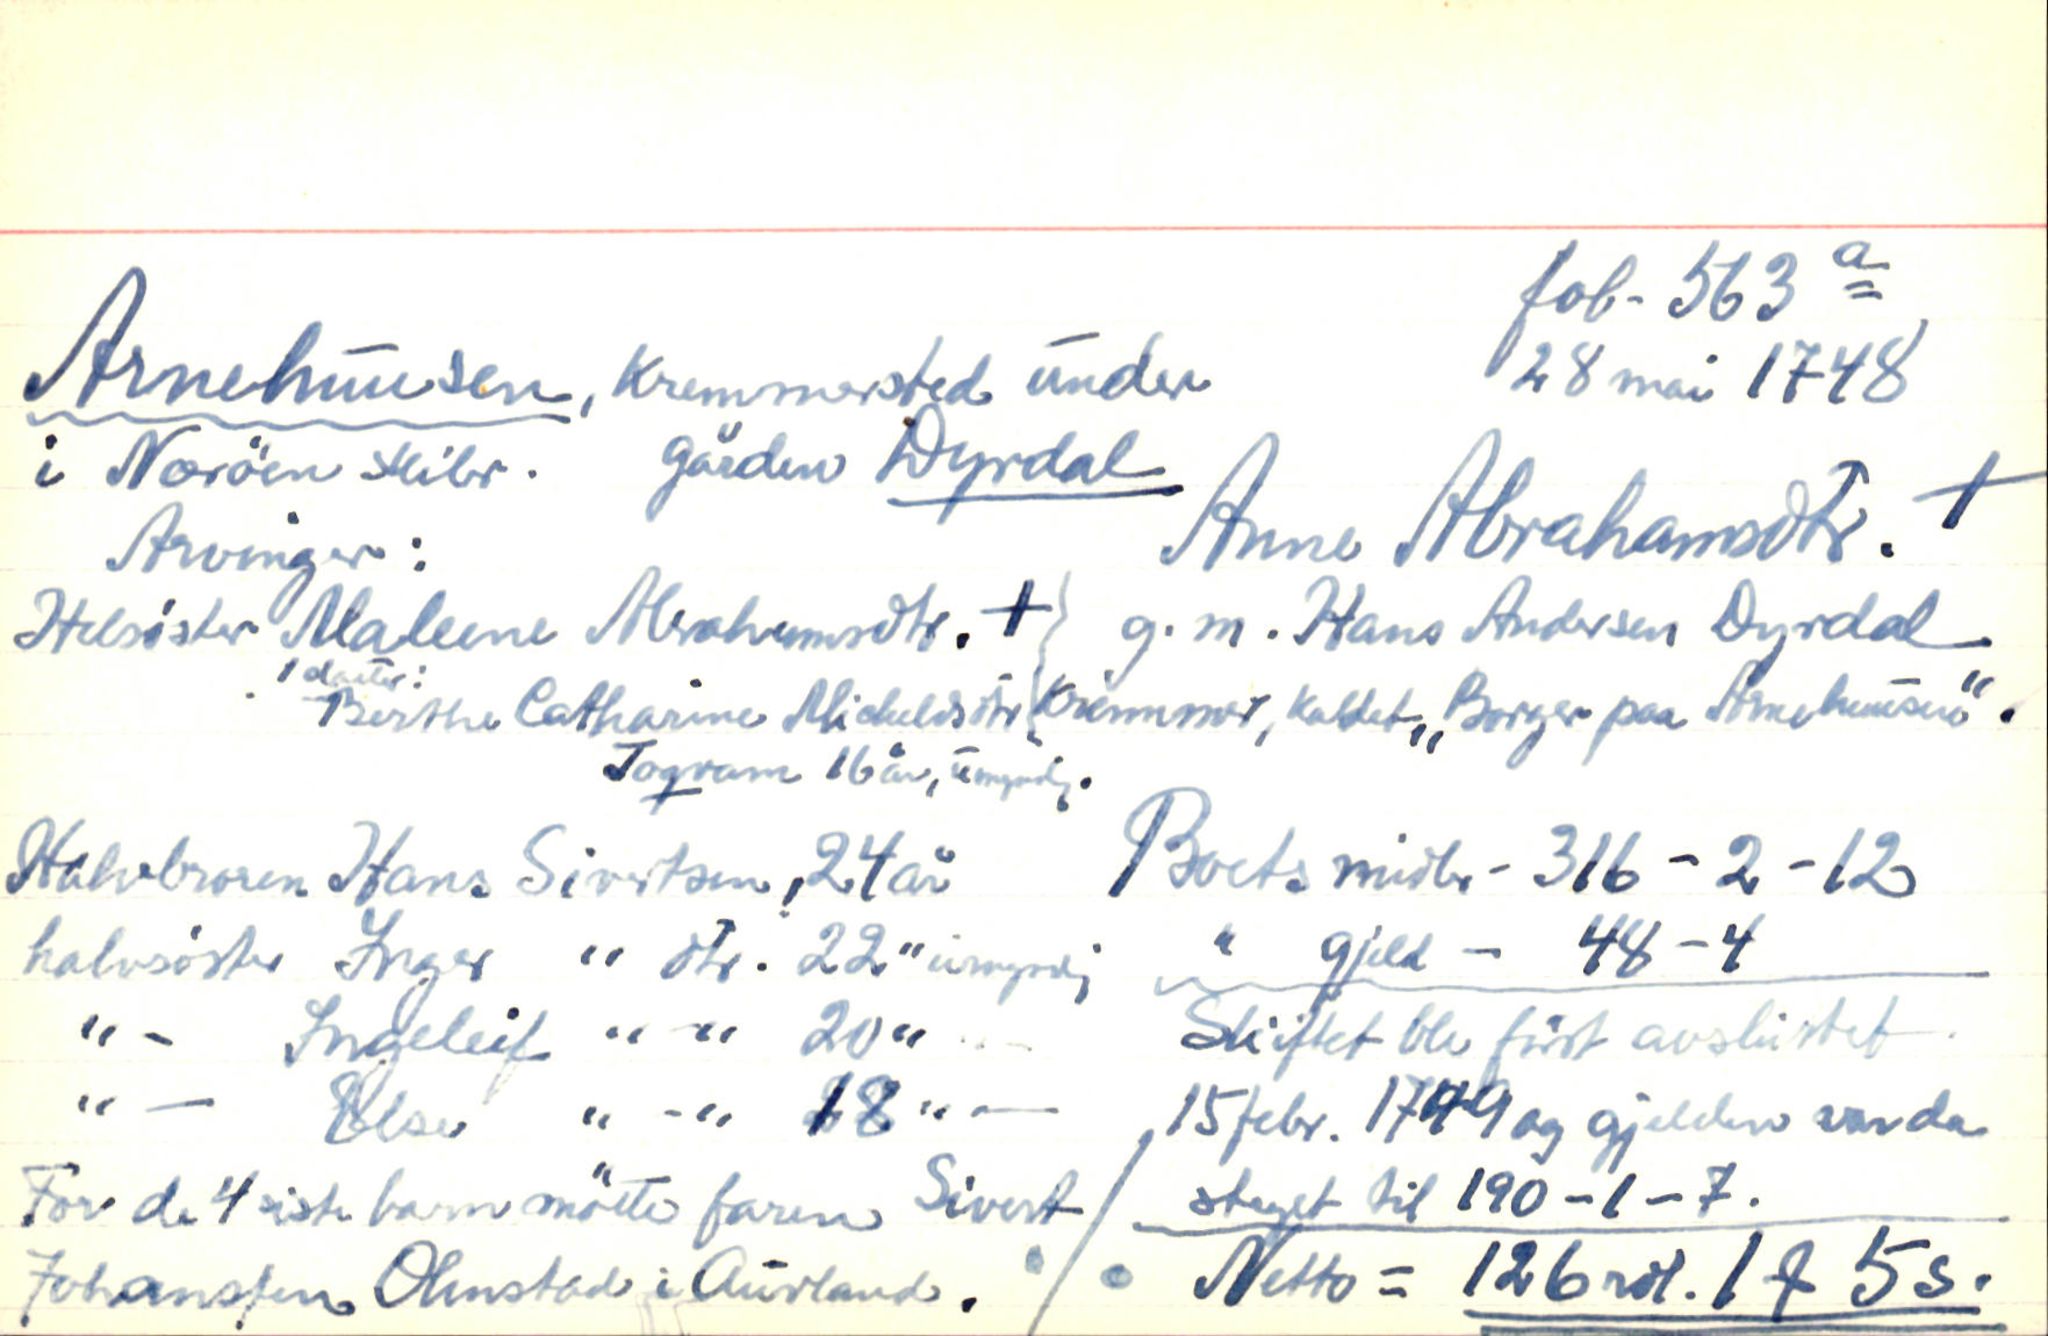 fol. 563 a
28 mai 1748
Arnehuusen, Kremmersted under
i Næröen skibr. gården Dyrdal
Anne Abrahamsdtr. +
Arvinger:
Helsöster Maleene Abrahamsdtr. + } g. m. Hans Andersen Dyrdal
1 datter:
Berthe Catharine Michelsdtr Kremmer, kaldet „Borger paa Arnehuusen“.
16 år, umyndig.
Halvbroren Hans Sivertsen, 24 år
halvsöster Inger " dtr. 22 " umyndig
" - Ingeleif " - " 20 "
" - Else " - " 18 " -
For de 4 siste barn mötte faren Sivert
Johansen Olmstad i Aurland.
Boets midler - 316 - 2 - 12
" gjeld - 48 - 4
Skiftet ble först avsluttet
15 febr. 1749 og gjelden var da
steget til 190 - 1 - 7.
Netto = 126 rdl. 1 f 5 s.